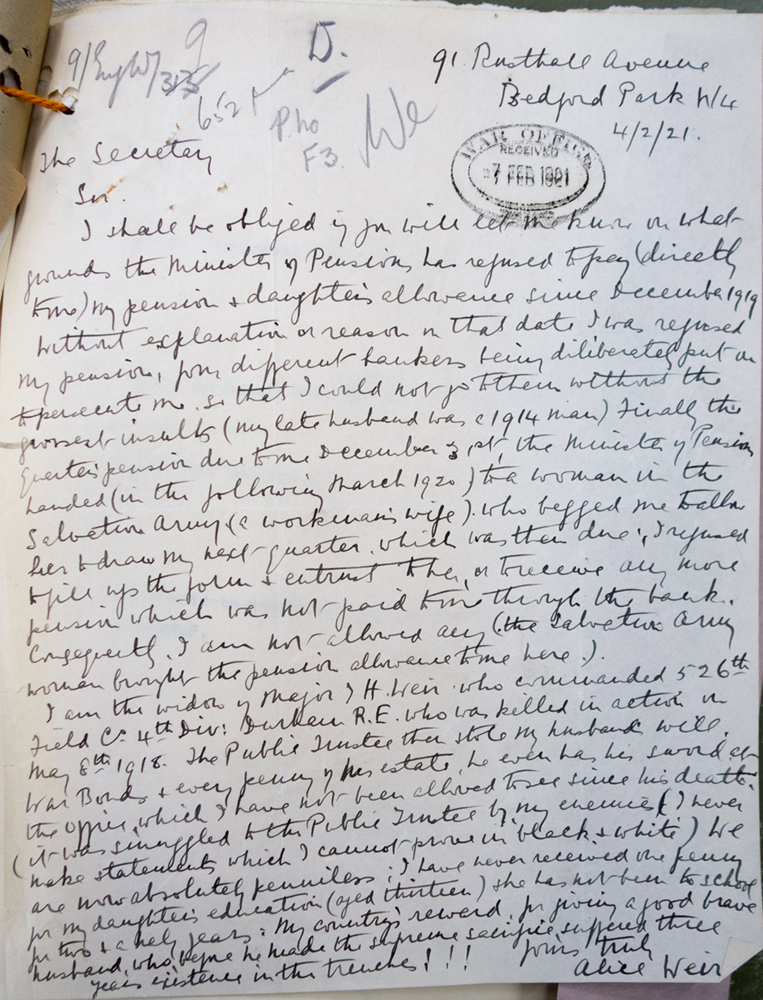 9/Engrs/
652
D.
Pho
F3.
91. Rusthall Avenue
Bedford Park W4
4/2/21.
WAR OFFICE
RECEIVED
7 FEB 1921
The Secretary
Sir.
I shall be obliged if you will let me know on what
grounds the Minister of Pensions has refused to pay (directly
to me) my pension & daughter's allowance since December 1919
without explanation or reason on that date I was refused
my pension, four different bankers being diliberately put on
to persecute me, so that I could not go to them without the
grossest insults (my late husband was a 1914 man) Finally the
Quarter's pension due to me December 31st, the Minister of Pensions
handed (in the following March 1920) to a woman in the
Salvation Army (a workman's wife). who begged me to allow
her to draw my next quarter. which was then due; I refused
to fill up the form & entrust to her, or to receive any more
pension which was not paid to me through the bank.
Consequently, I am not allowed any (the Salvation Army
woman brought the pension allowance to me here.).
I am the widow of Major J H. Weir who commanded 526th
Field Co 4th Div: Durham R.E. who was killed in action on
May 8th 1918. The Public Trustee then stole my husband's will,
War Bonds & every penny of his estate, he even has his sword, at
the Office, which I have not been allowed to see since his death.
(it was smuggled to the Public Trustee by my enemies (I never
make statements which I cannot prove in black & white) We
are now absolutely penniless; I have never received one penny
for my daughter's education (aged thirteen) she has not been to school
for two & a half years: My country's reward, for giving a good brave
husband, who, before he made the supreme sacrifice, suffered three
years existence in the trenches!!!
Yours truly
Alice Weir